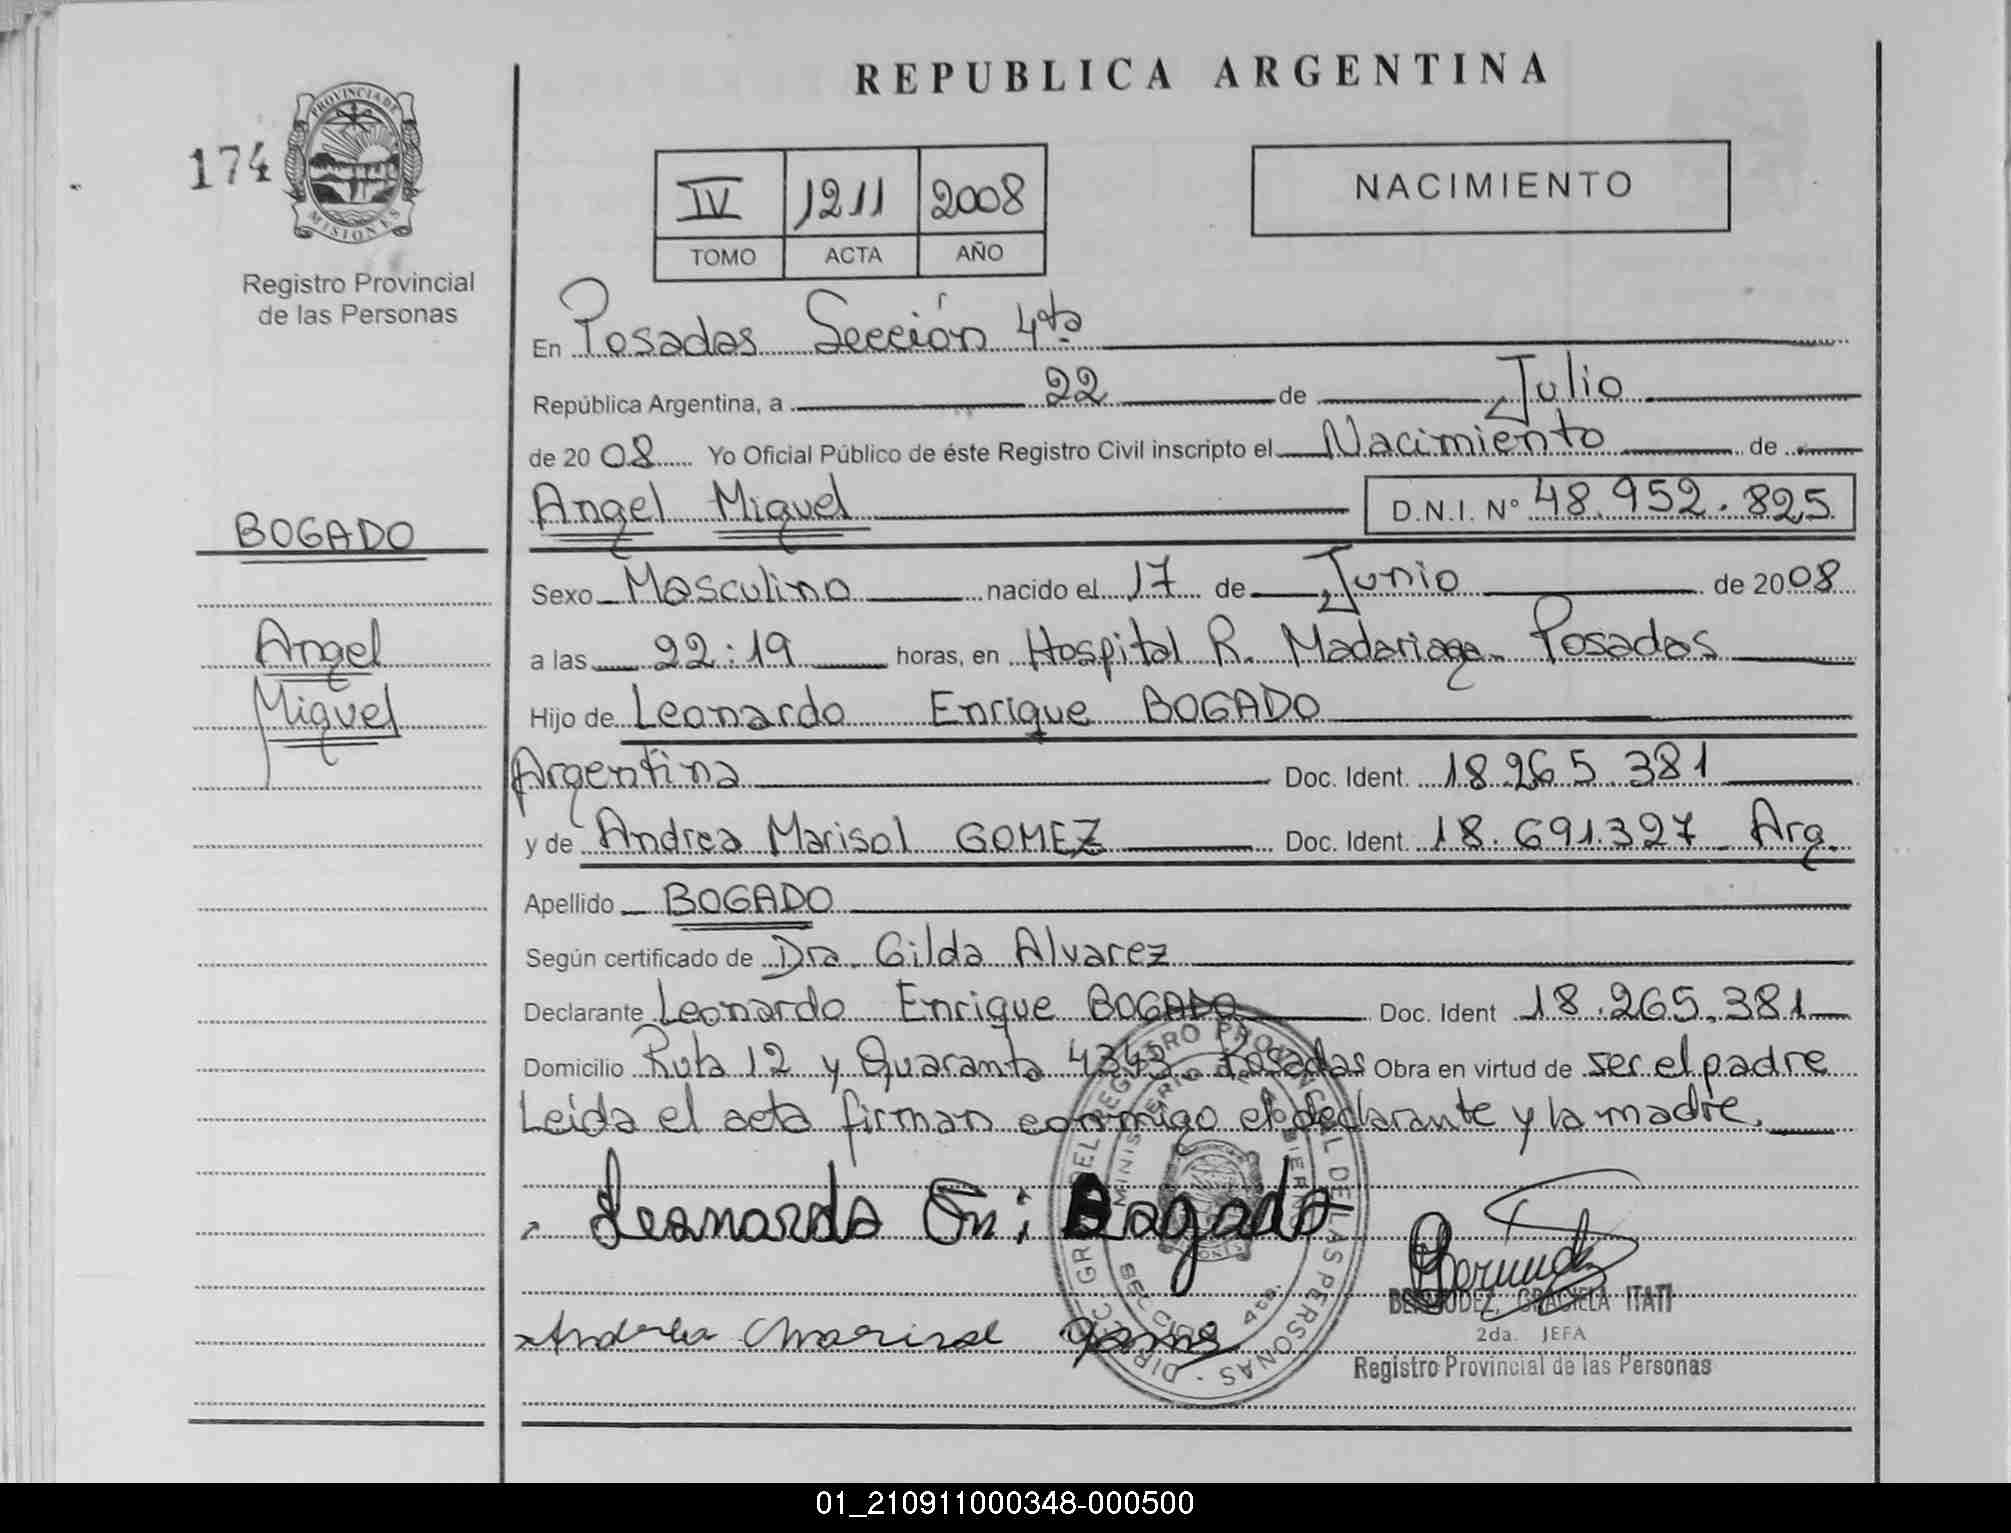 REPUBLICA ARGENTINA
174
PROVINCIA DE
MISIONES
Registro Provincial
de las Personas
IV 1211 2008
TOMO ACTA AÑO
NACIMIENTO
En Posadas Sección 4ta
República Argentina, a 22 de Julio
de 2008 Yo Oficial Público de éste Registro Civil inscripto el Nacimiento de
Angel Miguel D.N.I. Nº 48.952.825
BOGADO
Angel
Miguel
Sexo Masculino nacido el 17 de Junio de 2008
a las 22:19 horas, en Hospital R. Madariaga Posadas
Hijo de Leonardo Enrique BOGADO
Argentina Doc. Ident. 18.265.381
y de Andrea Marisol GOMEZ Doc. Ident. 18.691.327 Arg.
Apellido BOGADO
Según certificado de Dra. Gilda Alvarez
Declarante Leonardo Enrique BOGADO Doc. Ident 18.265.381
Domicilio Ruta 12 y Quaranta 4343 Posadas Obra en virtud de ser el padre
Leida el acta firman conmigo el declarante y la madre.
Leonardo En: Bogado
Andrea Marisol
BERMUDEZ, GRACIELA ITATI
2da. JEFA
Registro Provincial de las Personas
DIREC. GRAL. DEL REGISTRO PROVINCIAL DE LAS PERSONAS
MINISTERIO DE GOBIERNO
SECCION 4ta.
01_210911000348-000500